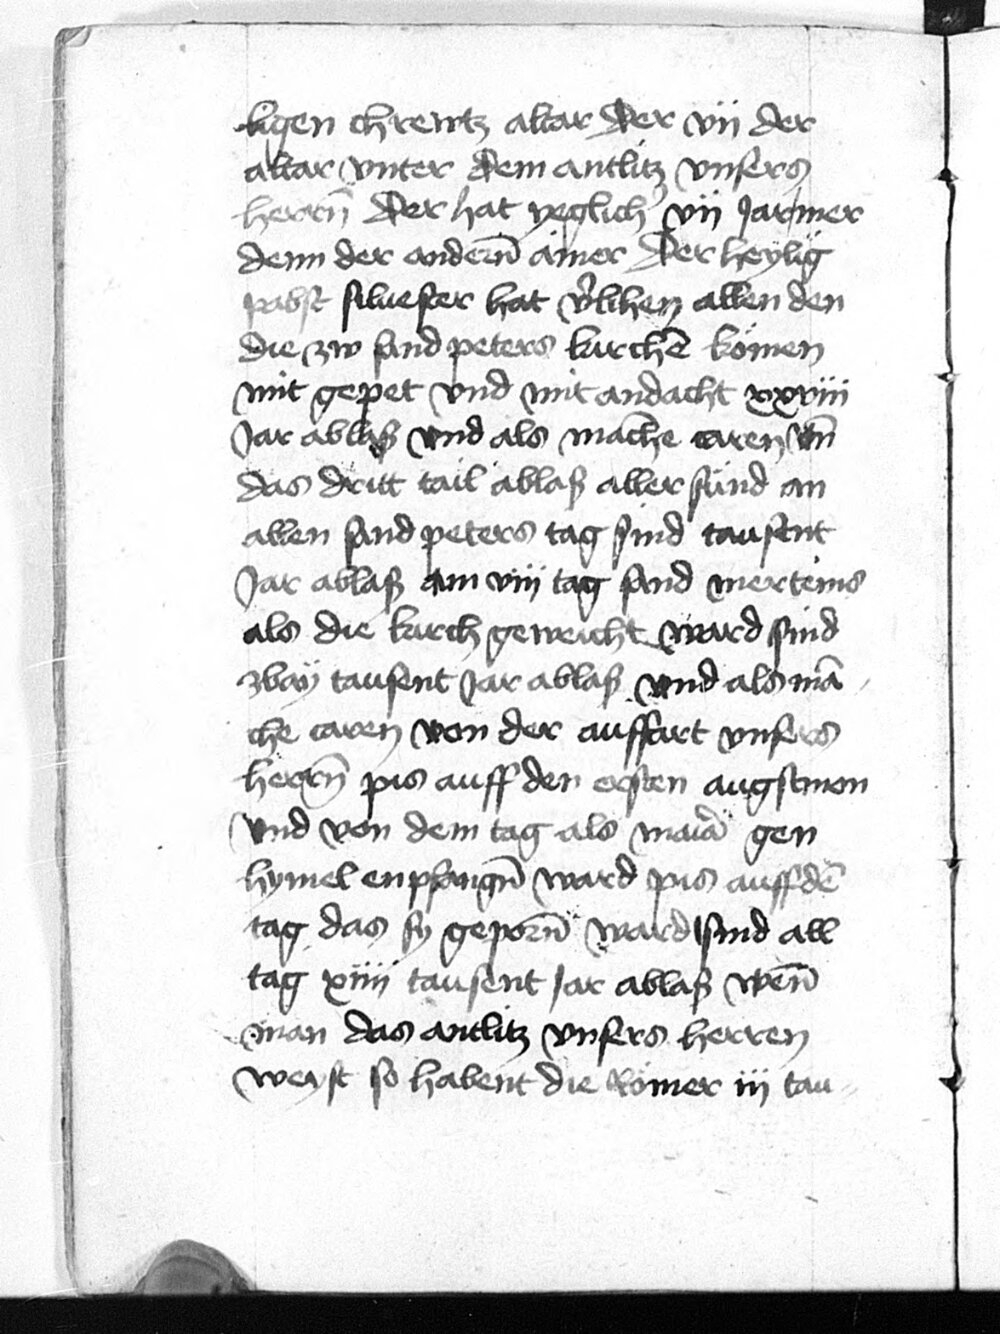 ligen chrewtz altar Der vij der
altar vnter dem antlitz vnsers
herrn̄ Der hat yeglich' vij Jar mer
denn der andern̄ ainer Der heylig
pabst siluester hat v'lihen allen den
die zw sand peters kirchē kömen
mit gepet vnd mit andacht xxviij
Jar ablaß vnd als māche caren vn̄
das dritt tail ablaß aller sünd an
allen sand peters tag sind tausent
Jar ablaß am viij tag sand merteins
als die kirch geweicht ward sind
zway tausent Jar ablaß vnd als mā
che caren von der auffart vnsers
herrn̄ pis auff den ersten augstmon
Vnd von dem tag als maria gen
hymel enpfangn̄ ward pis auff dē
tag das sy geporn̄ ward sind all
tag xiiij tausent Jar ablaß wen̄
man das antlitz vnsers herren
weyst so habent die Römer iij tau